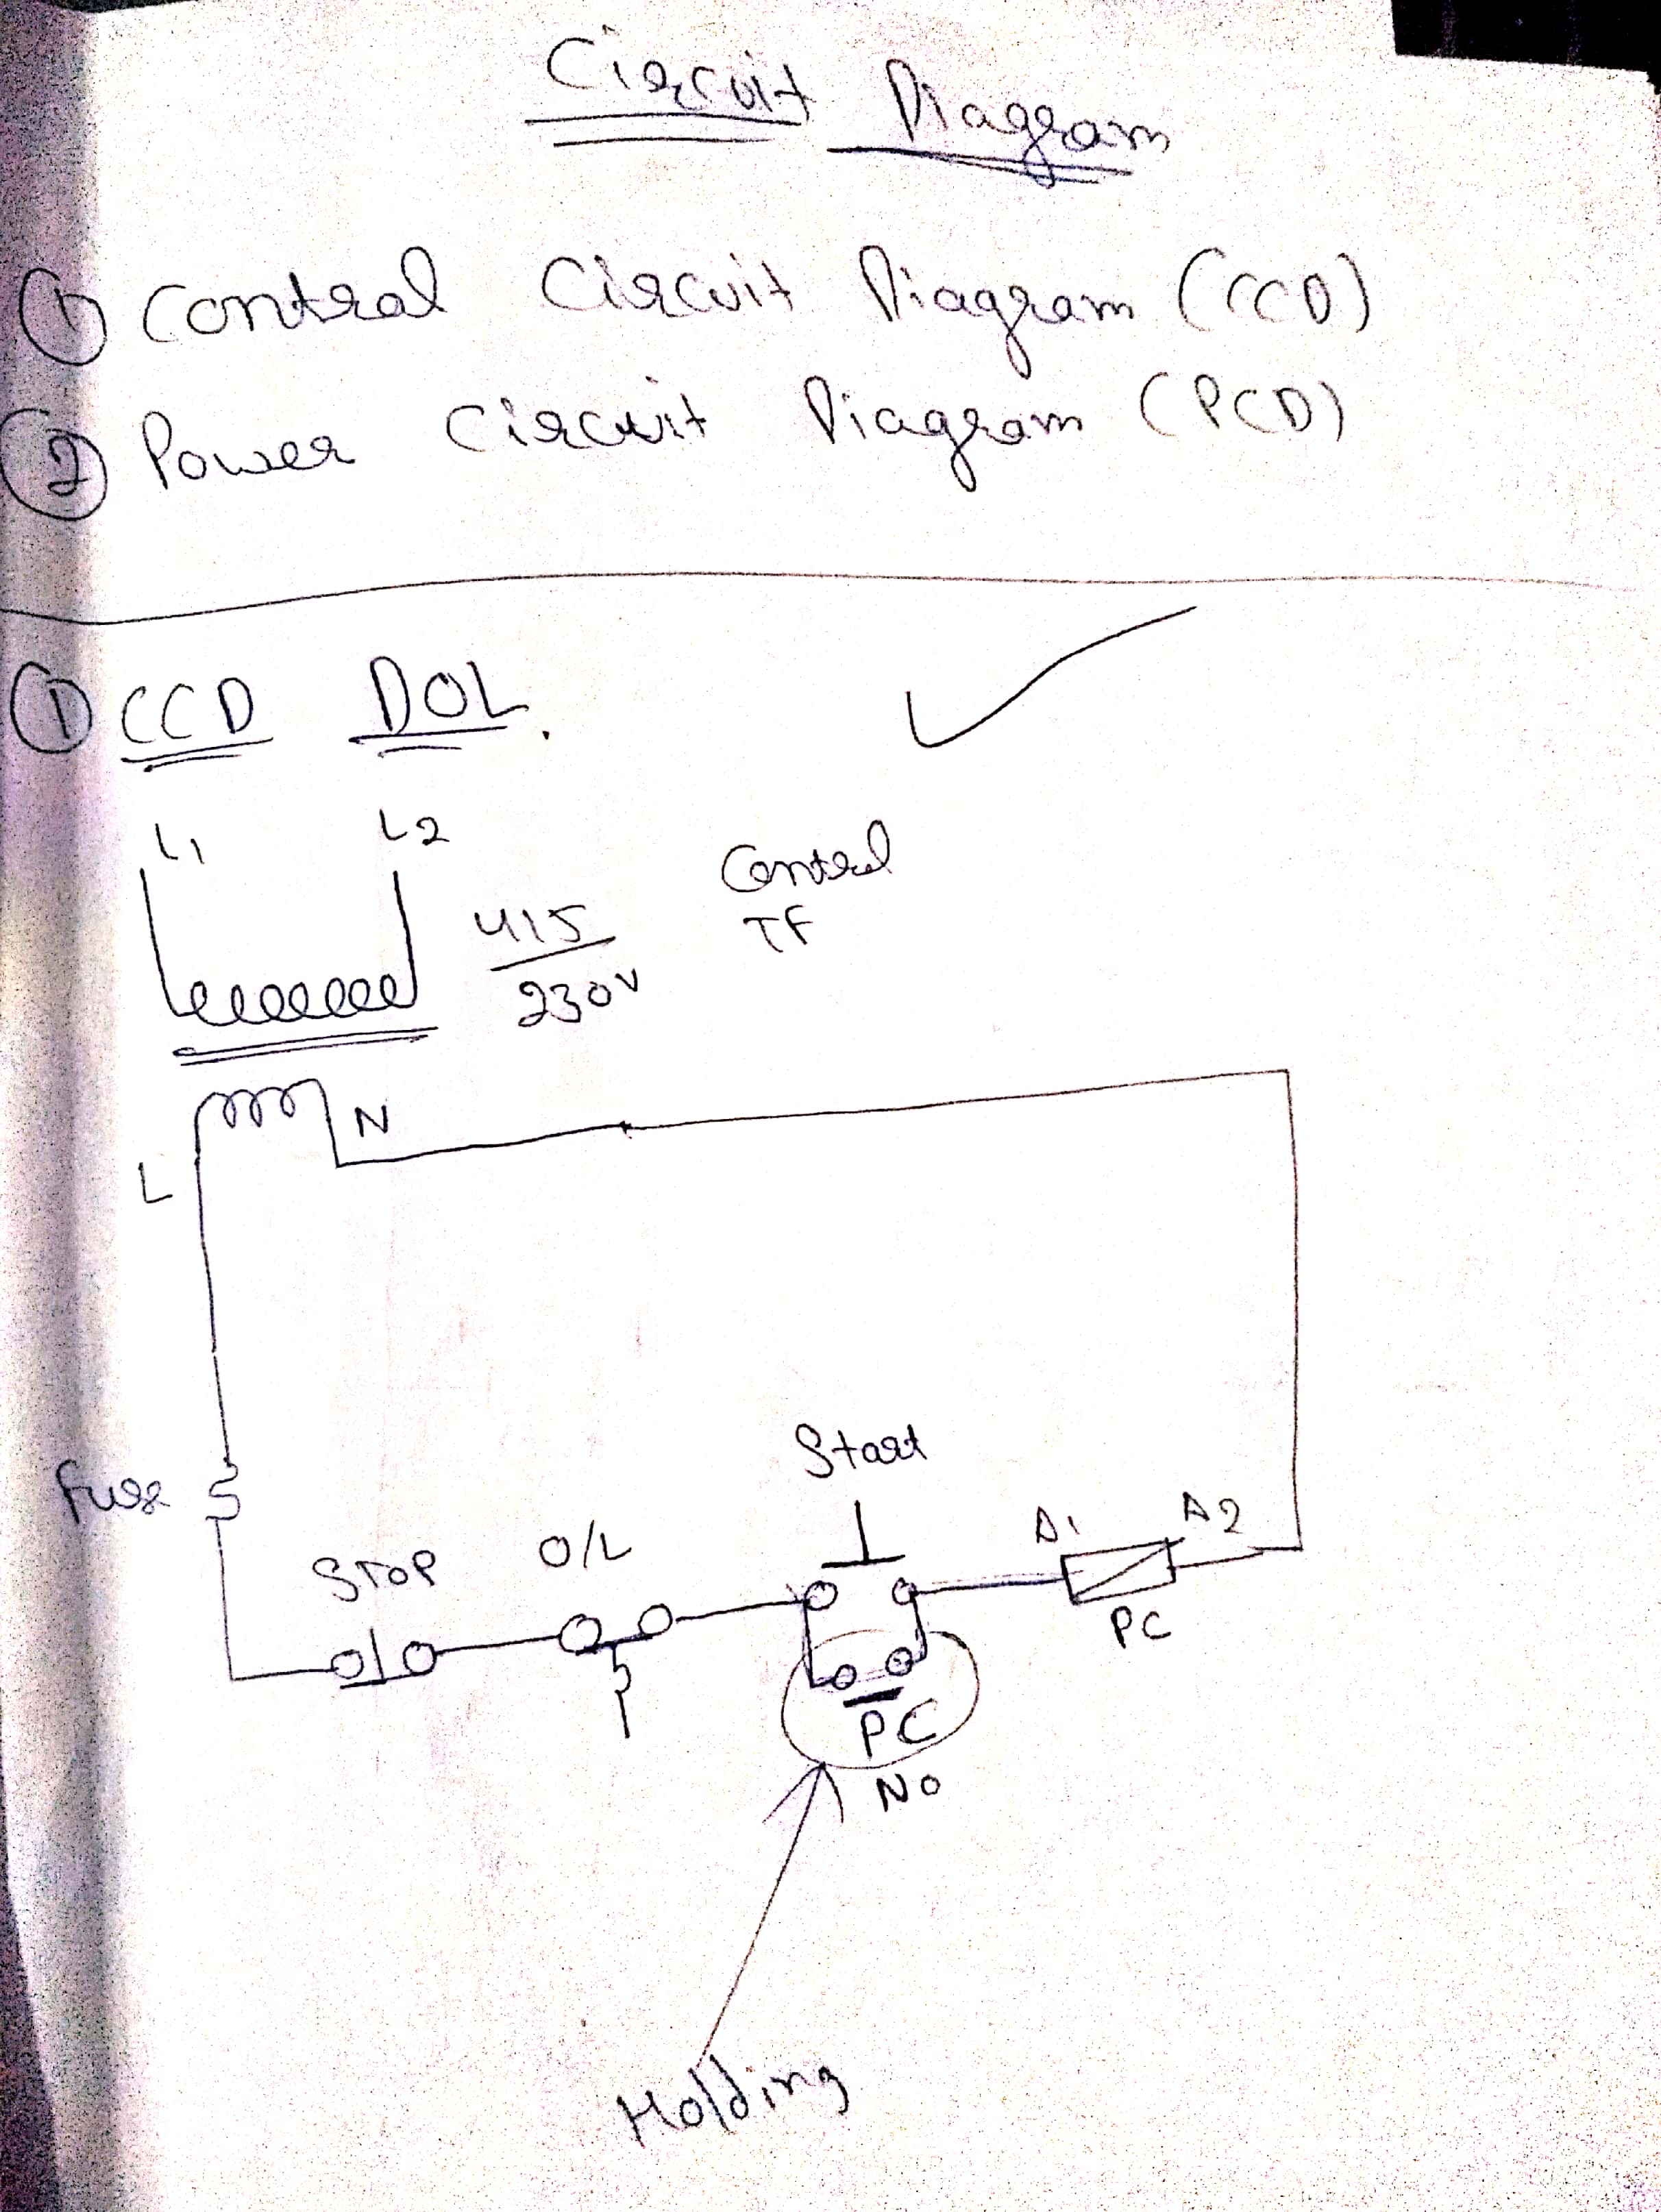 Circuit Diagram
① Control Circuit Diagram (CCD)
② Power Circuit Diagram (PCD)
① CCD DOL.
L1 L2
Control
TF
415
230V
N
L
Start
Fuse
STOP
O/L
A1 A2
PC
PC
NO
Holding